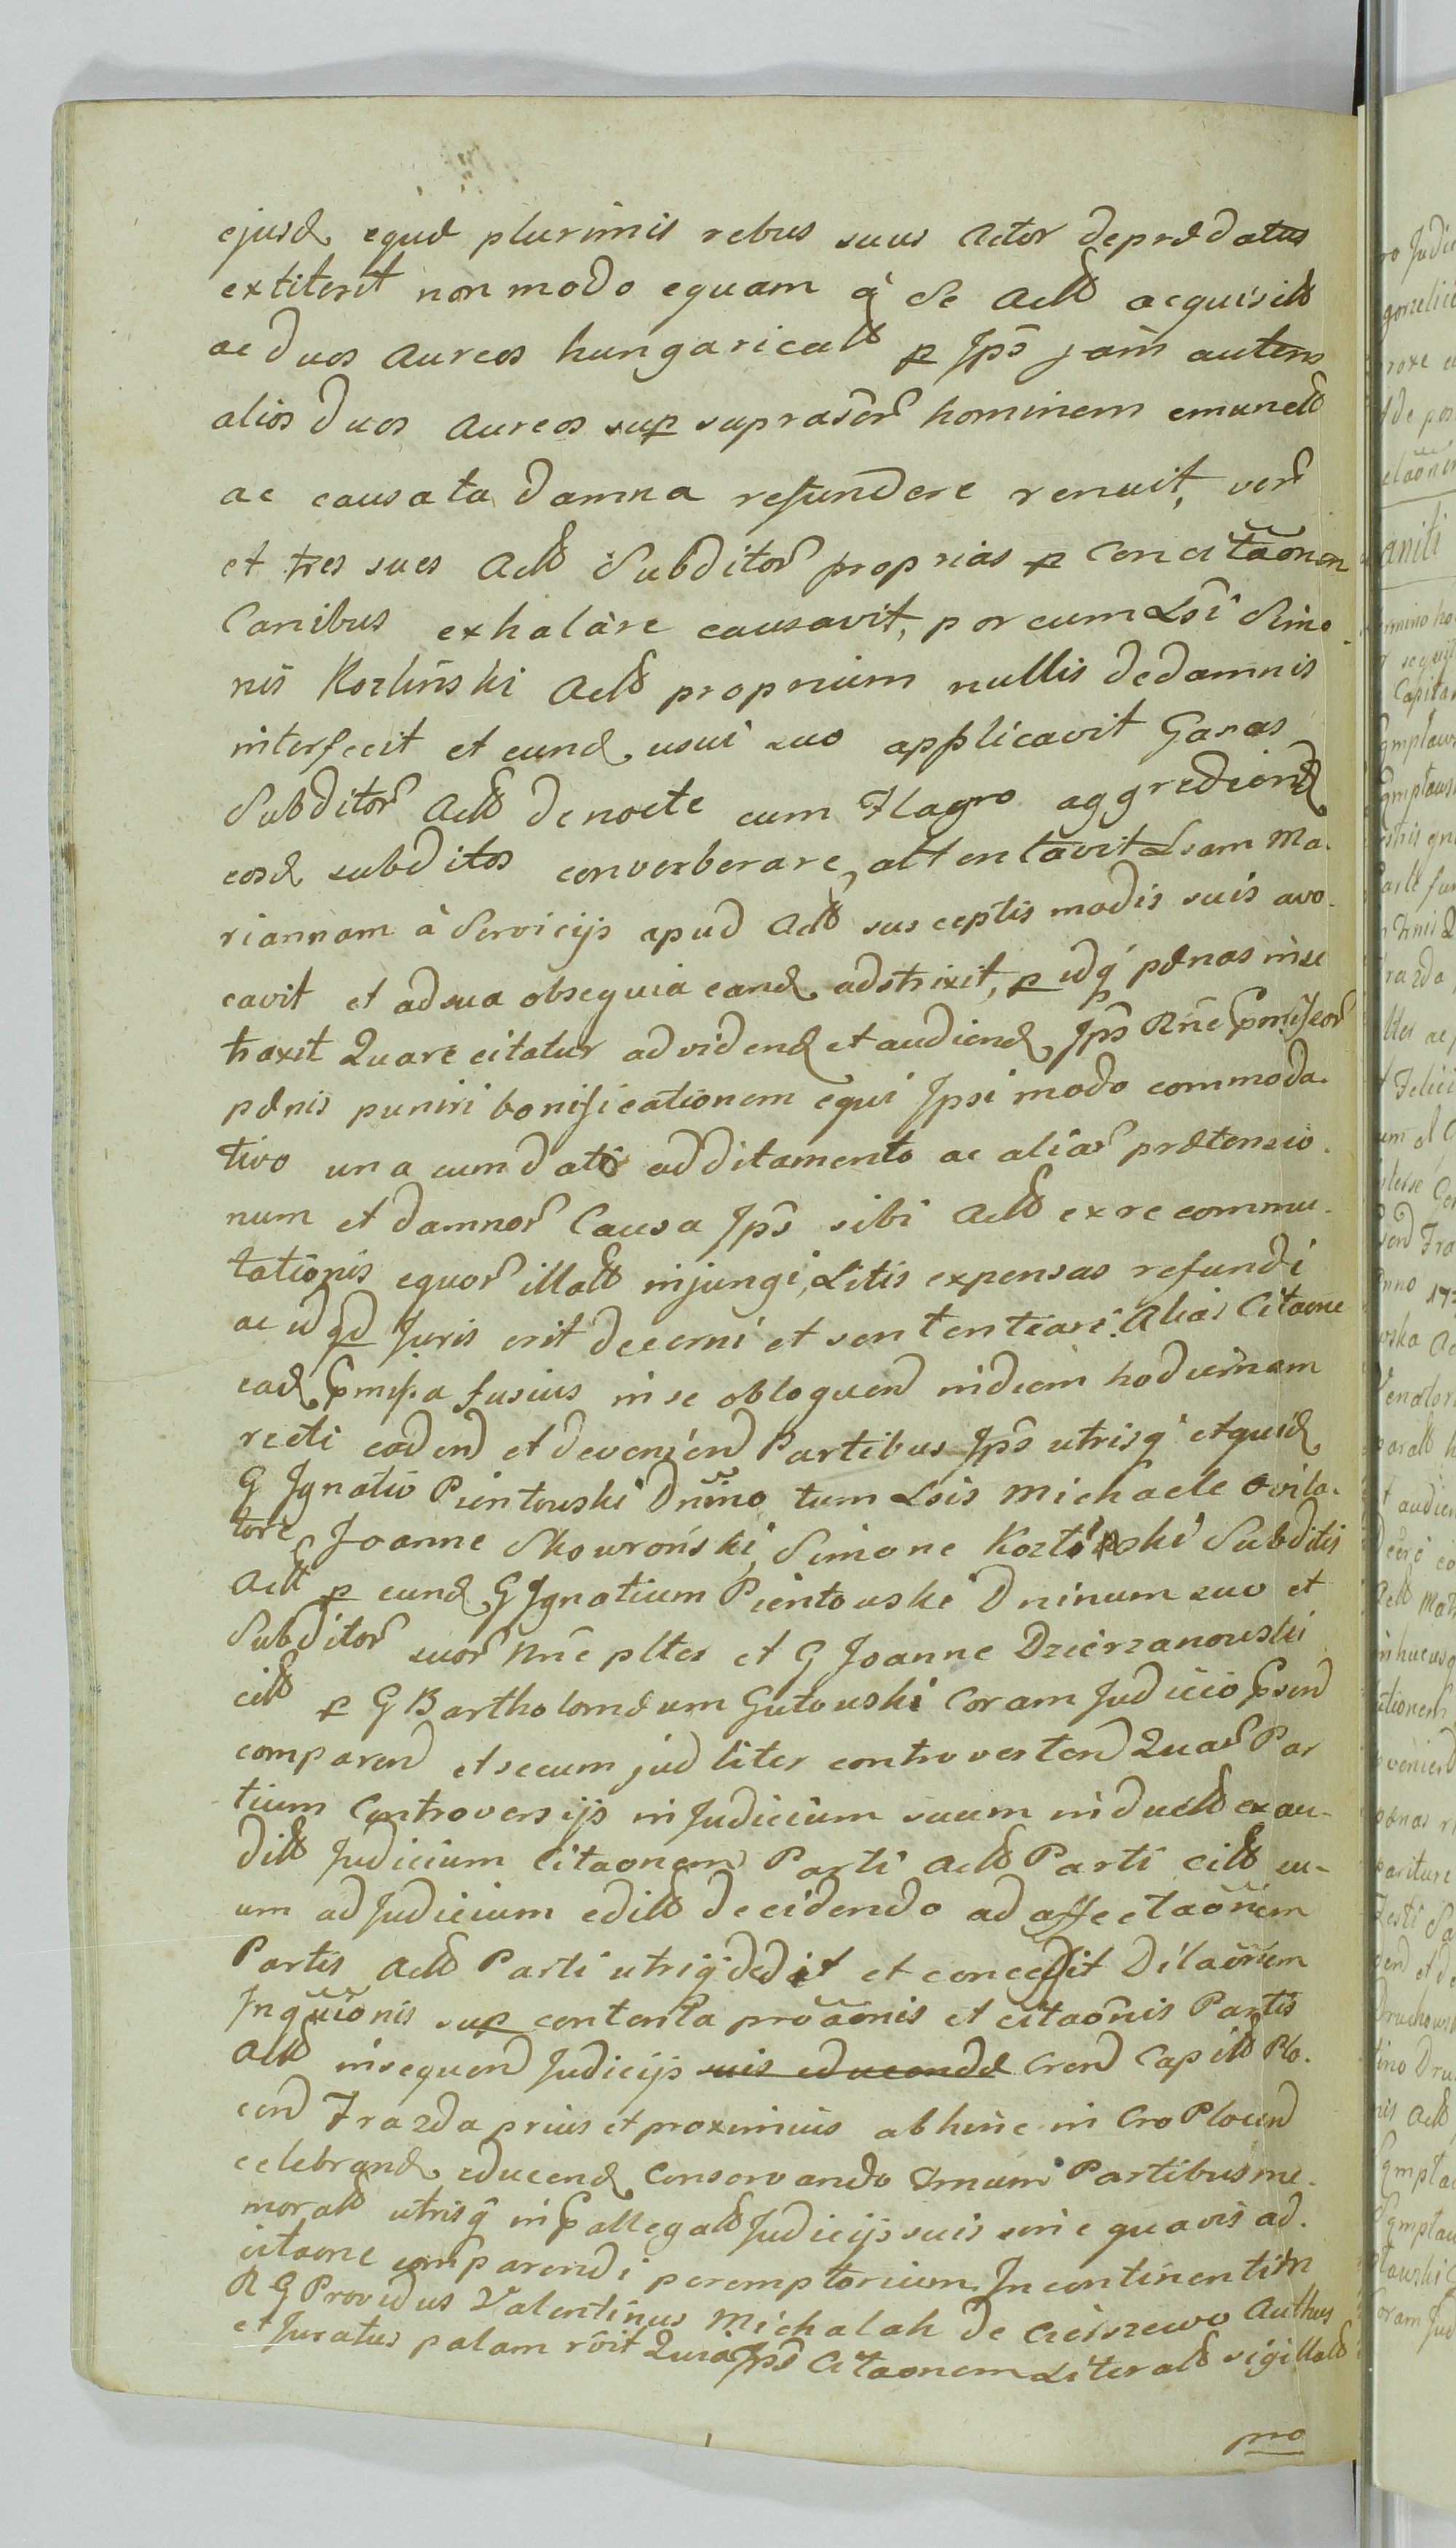 ejusd equæ plurimis rebus suus Actor deprædatus
extiterit non modo equam à se Actt acquisitt
ac duos aureos hungaricatt p Ips jam autem
alios duos aureos sup suprascr hominem emunctt
ac causata damna refundere renuit, ver
et tres sues Actt Subditor proprias p Concitaonem
Canibus exhalare causavit, porcum Lsi Simo-
nis Kozlinski Actt proprium nullis de damnis
interfecit et eund usui suo applicavit Garas
Subditor Actt de nocte cum Flagro aggrediend
eosd subditos converberare attentavit Lsam Ma-
riannam à Servicijs apud Actt susceptis modis suis avo-
cavit et ad sua obsequia eand adstrixit, p idq pænas in se
traxit Quare citatur ad vidend et audiend Ips Rne pmissor
pænis puniri bonificationem equi Ipsi modo commoda-
tivo una cum dato additamento ac aliar prætensio-
num et damnor Causa Ips sibi Actt ex re commu-
tationis equor illatt injungi, Litis expensas refundi
ac id qd Juris erit decerni et sententiari. Alias Citaone
ead pmissa fusius in se obloquend in diem hodiernam
recti cadend et deveniend Partibus Ips utrisq et quid
G Ignatio Pientowski Dnino tum Lsis Michaele Owila-
tore, Joanne Skowroński, Simone Kozlinski Subditis
Actt p eund G Ignatium Pientowski Dninum suo et
Subditor suor Nne pltes et G Joanne Dzierzanowski
citt p G Bartholomæum Gutowski Coram Judicio psend
comparend et secum judliter controvertend Quar Par
tium Controversijs in Judicium suum inductt exau-
ditt Judicium Citaonem Parti Actt Parti citt su-
um ad Judicium editt decidendo ad affectaonem
Partis Actt Parti utriq dedit et concessit Dilaonem
Inquionis sup contenta proaonis et citaonis Partis
Actt in sequend Judicijs suis educendæ Crend Capitt Plo-
cend Frazda prius et proximius abhinc in Cro Plocend
celebrand educend Conservando Tmum Partibus me-
moratt utrisq in pallegatt Judicijs suis sine quavis ad-
citaone comparendi peremptorium. In continentim
R G Providus Valentinus Michalak de Cieszewo Authus
et Juratus palam roit Quia Ips Citaonem Literatt sigillatt
pro